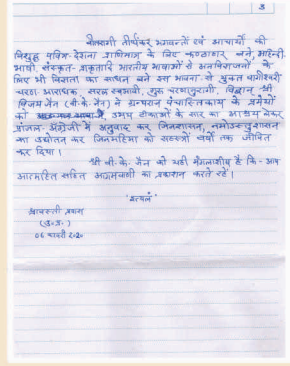 3
वीतरागी तीर्थंकर भगवन्तों एवं आचार्यों की
विशुद्ध पवित्र देशना प्राणिमात्र के लिए कण्ठाहार बने,
भाषी, संस्कृत, प्राकृतादि भारतीय भाषाओं से अनभिज्ञजनों के
लिए भी विज्ञता का साधन बने इस भावना से युक्त वागीश्वरी
चरण आराधक, सरल स्वभावी, गुरु चरणानुरागी, विद्वान् श्री
विजय जैन (वी.के. जैन) ने ग्रन्थराज पंचास्तिकाय के प्रमेयों
को उभय टीकाओं के सार का आश्रय लेकर
प्रांजल अंग्रेजी में अनुवाद कर जिनशासन, नमोऽस्तुशासन
का उद्योतन कर जिनमहिमा को सहस्त्रों वर्षों तक जीवित
कर दिया।
श्री वी.के. जैन को यही मंगलाशीष है कि - आप
आत्महित सहित आगमवाणी का प्रकाशन करते रहें।
श्रावस्ती प्रवास
(उ.प्र.)
06 2020